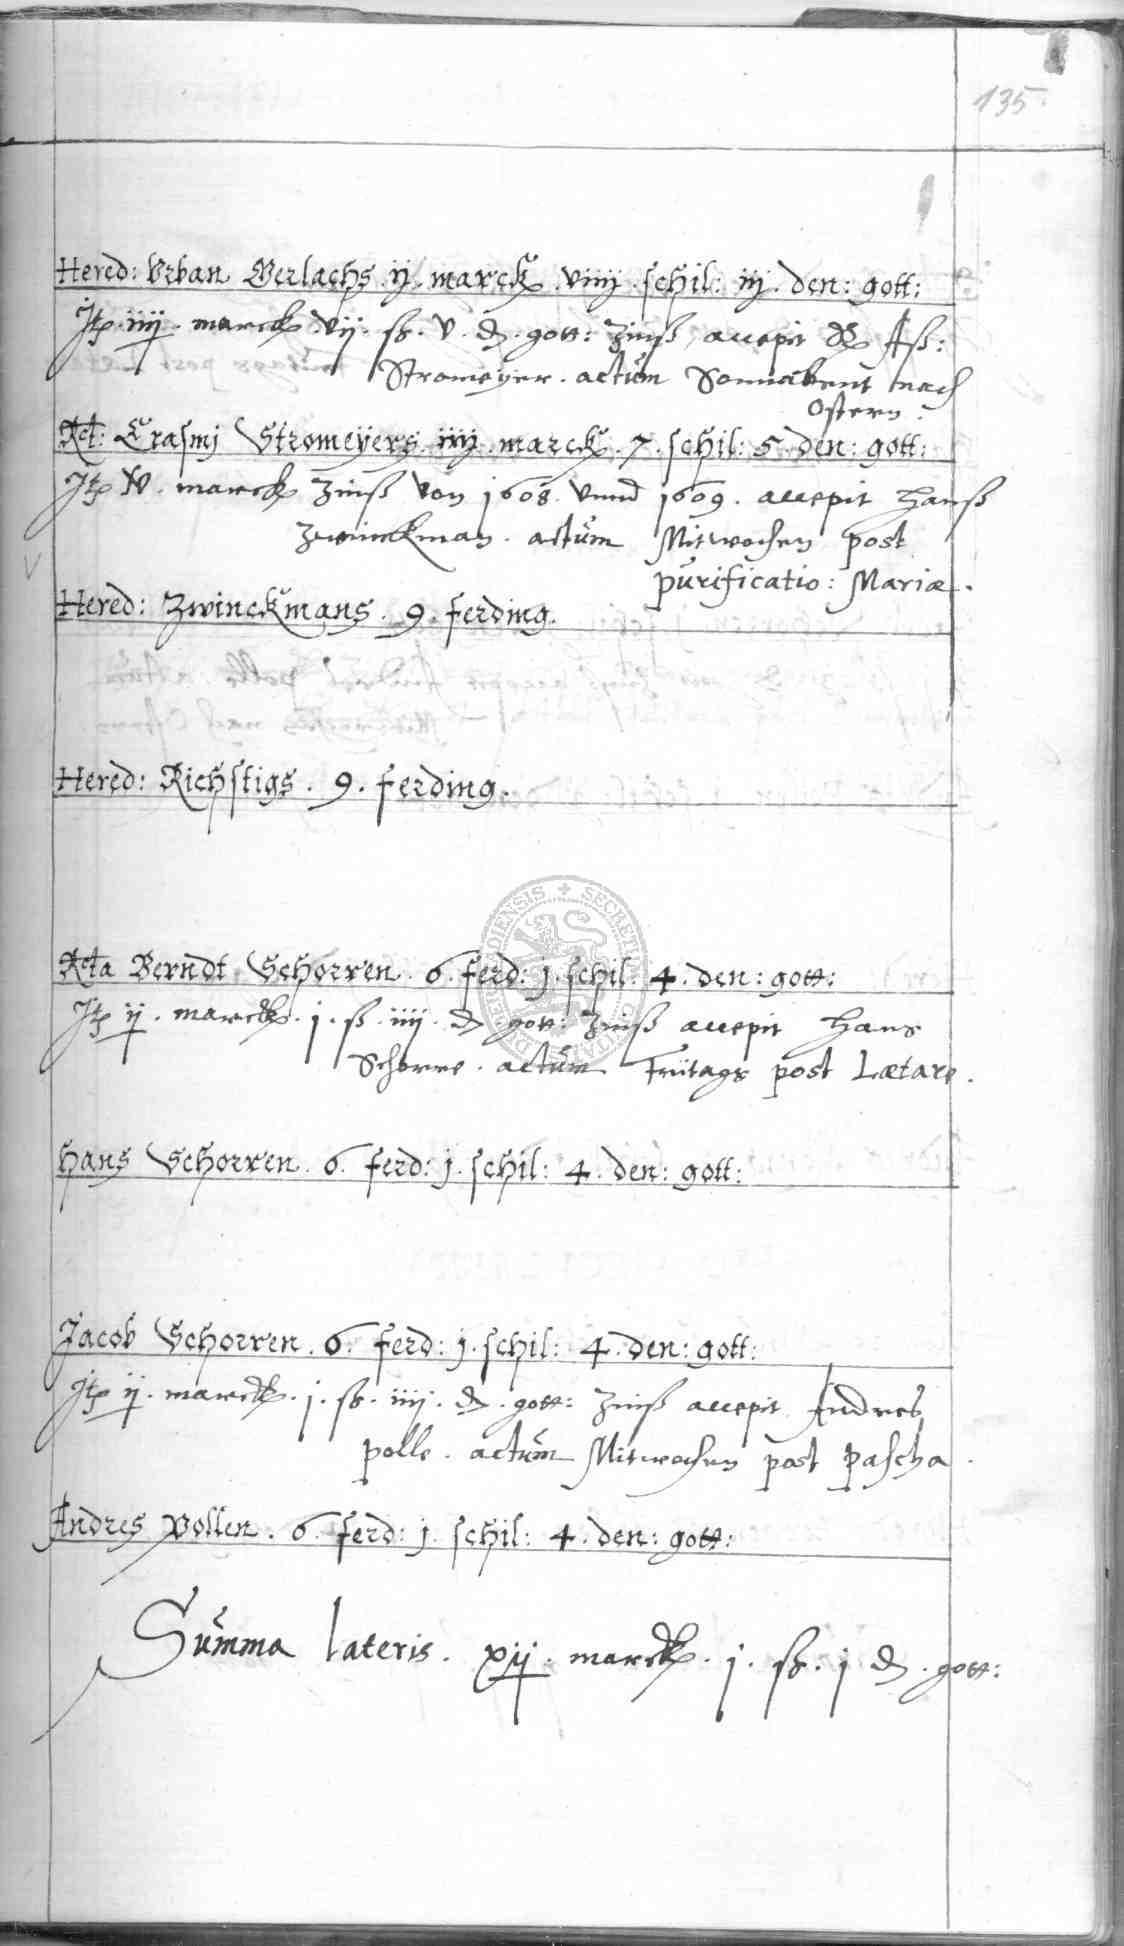 135.
Hered: Vrban Gerlachs . ij . marck . viiij . schil: iij . den: gott:
Itē . iiij . marck vij . ß . v . d . gott: Zinß accepit
Stromeyer . actum Sonnabent nach
Ostern .
Rct: Erasmj Stromeyers . iiij . marck . 7 . schil: 5 . den: gott:
Itē . marck Zinß von 1608 vnnd 1609 . accepit Hanß
Zwinckman . actum Mitwochen post
purificatio: Mariæ .
Hered: Zwinckmans . 9 . ferding.
Hered: Richstigs . 9 . ferding.
Rcta Berndt Schorren . 6 . ferd: j . schil: 4 . den: gott:
Itē ij . marck . j . ß . iiij . d . gott: Zinß accepit Hans
Schorre . actum Fritags post Lætare .
Hans Schorren . 6 . ferd: j . schil: 4 . den: gott:
Jacob Schorren . 6 ferd: j . schil: 4 . den: gott:
Itē ij . marck . j . ß . iiij . d . gott: Zinß accepit Andres
polle . actum Mitwochen post pascha .
Andres Pollen . 6 . ferd: j . schil: 4 . den: gott:
Summa lateris . xij . marck . j . ß . j d . gott: